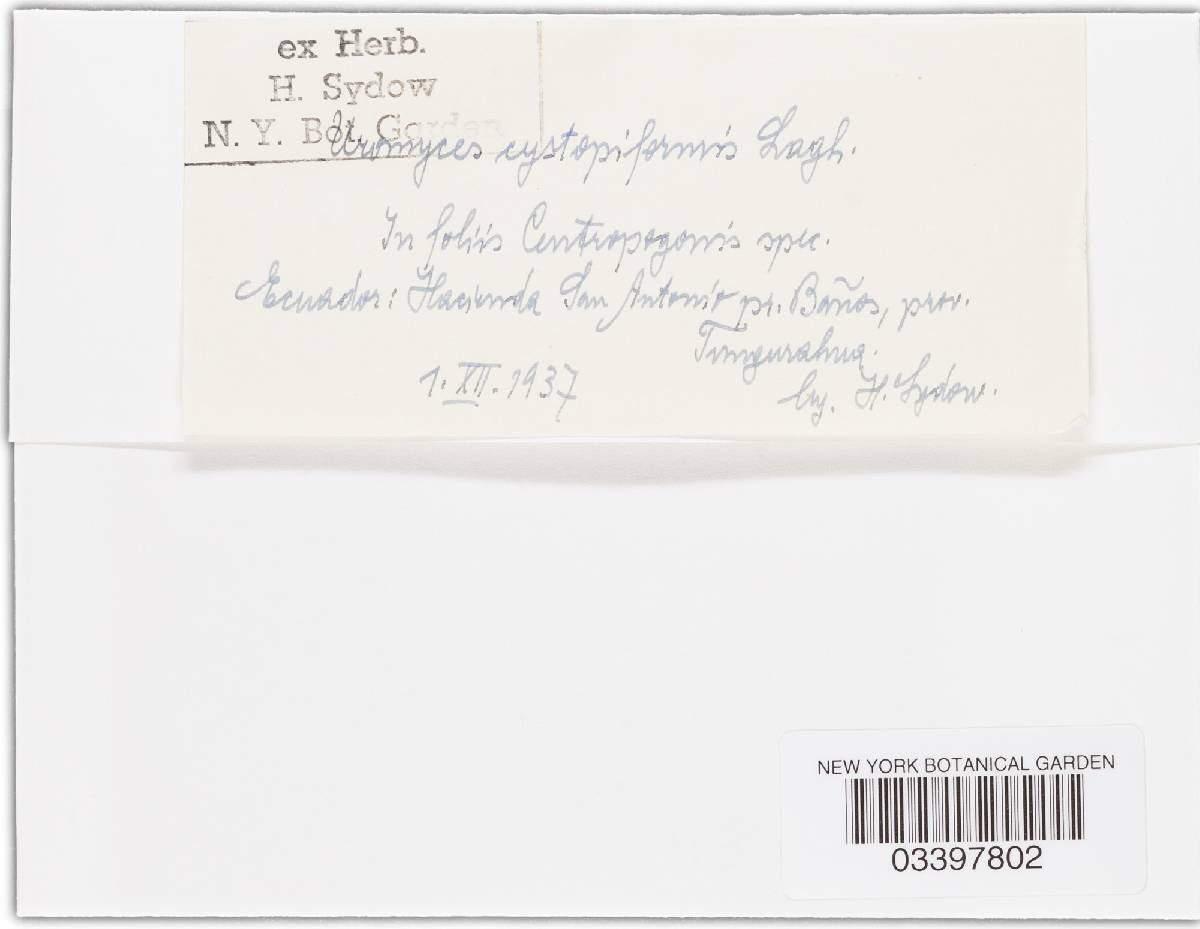 ex Herb.
H. Sydow
N. Y. Bot. Garden
Uromyces cystopiformis Lagh.
In foliis Centropogonis spec.
Ecuador: Hacienda San Antonio pr. Baños, prov.
Tungurahua.
1. XII. 1937
leg. H. Sydow.
NEW YORK BOTANICAL GARDEN
03397802